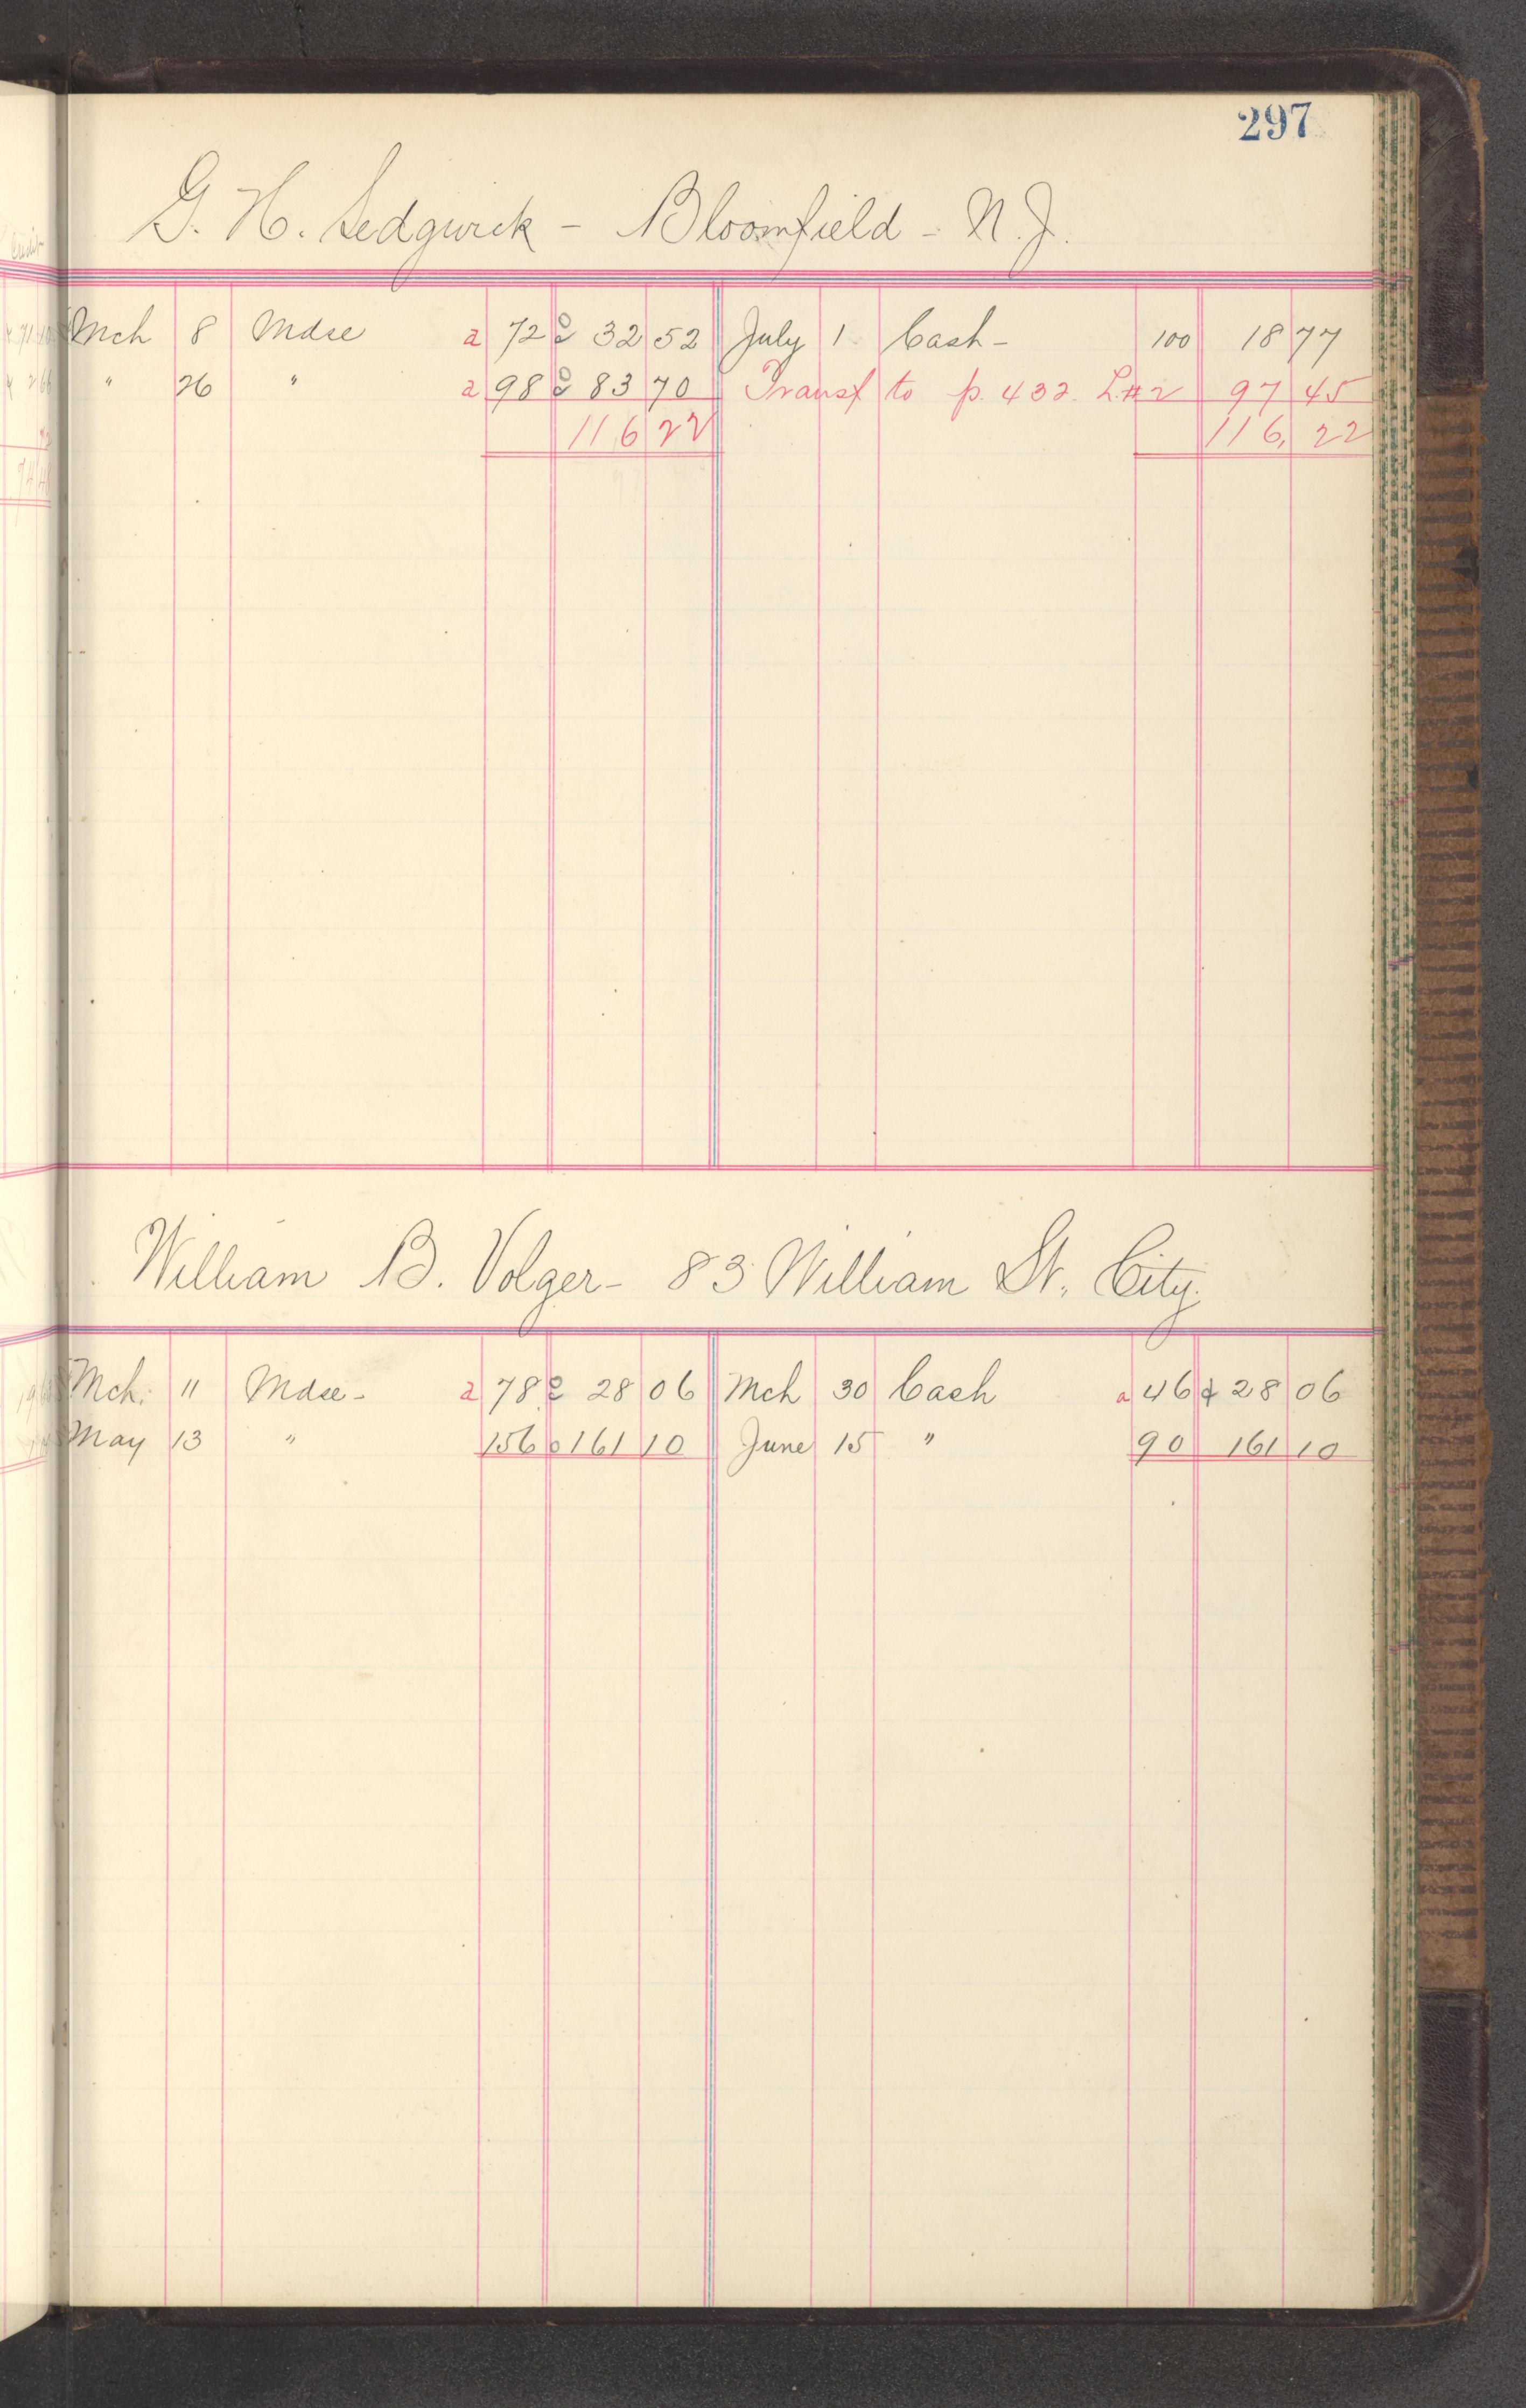 297
G. H. Sedgwick - Bloomfield - N.J.
Mch 8 Mdse a 72 32 52 July 1 Cash - 100 18 77
" 26 " a 98 83 70 Transf to p. 432. L#2 97 45
116 22 116, 22
William B. Volger - 83 William St. City.
Mch. 11 Mdse - a 78 28 06 Mch 30 Cash a 46 28 06
May 13 " 156 161 10 June 15 " 90 161 10